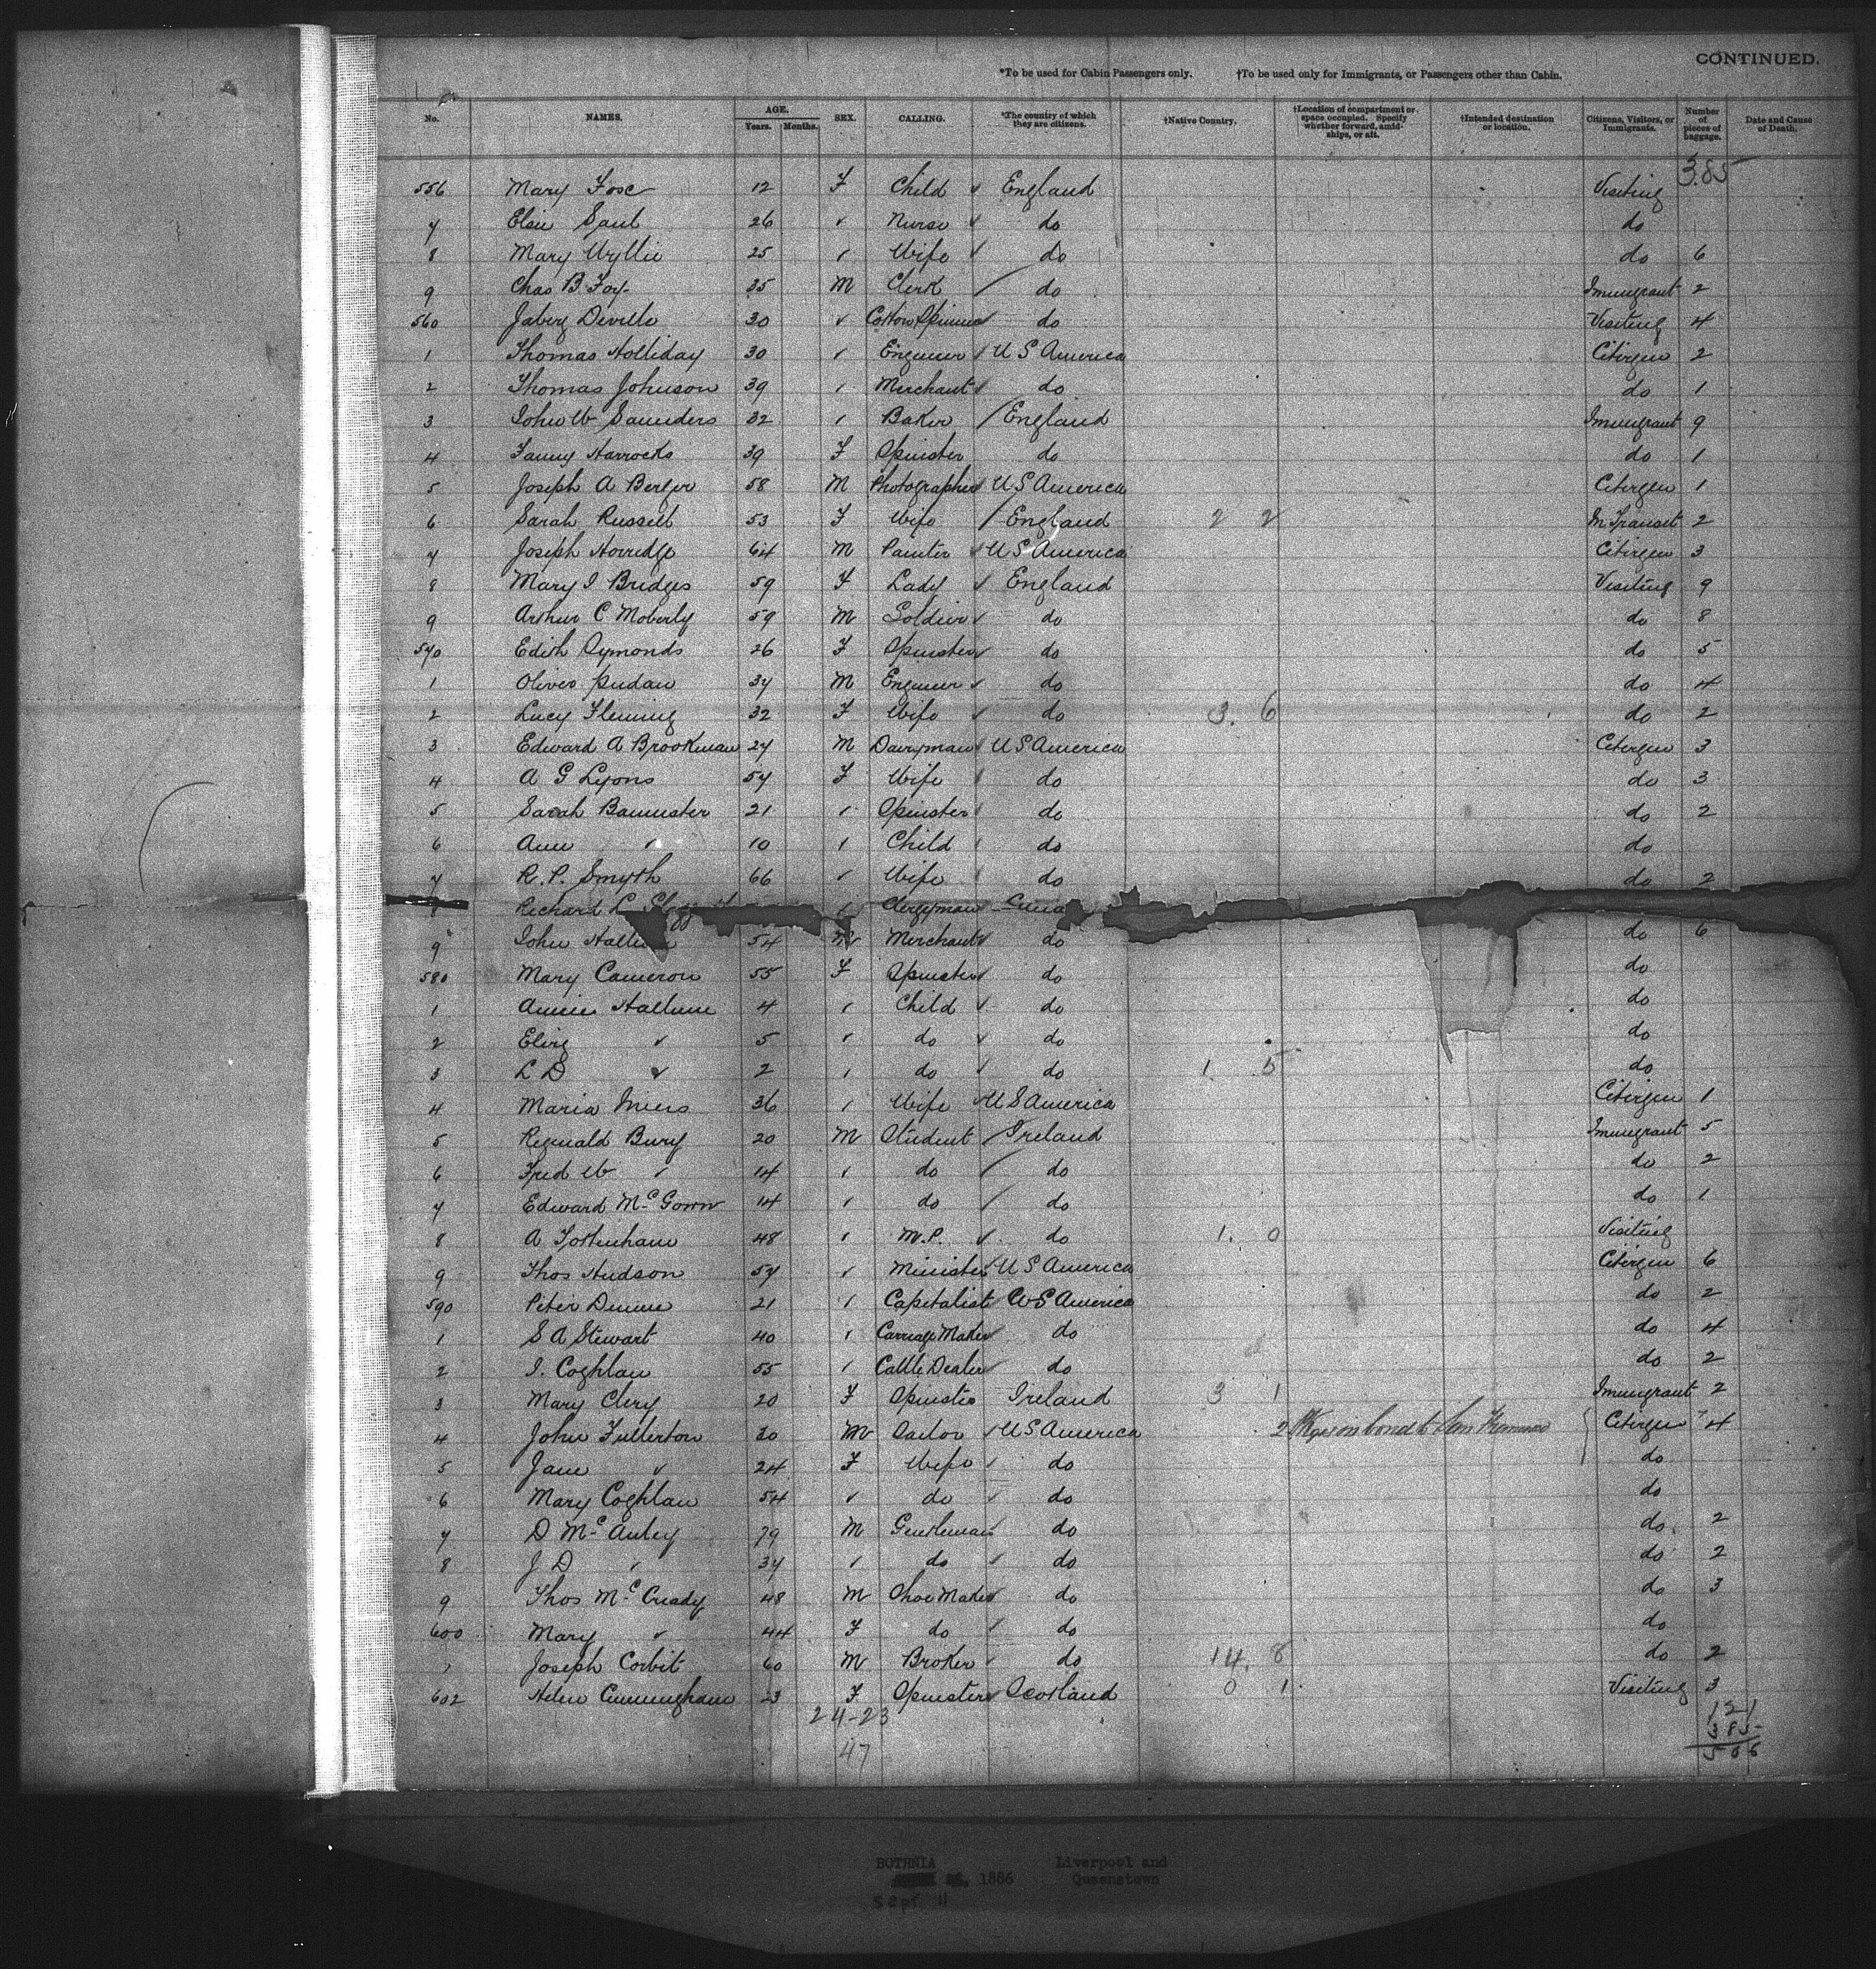 CONTINUED.
*To be used for Cabin Passengers only. †To be used only for Immigrants, or Passengers other than Cabin.
No. NAMES. AGE. Years. Months. SEX. CALLING. *The country of which they are citizens. †Native Country. †Location of compartment or space occupied. Specify whether forward, amidships, or aft. †Intended destination or location. Citizens, Visitors, or Immigrants. Number of pieces of baggage. Date and Cause of Death.
385
556 Mary 12 F Child England Visiting
7 Elsie Saul 26 " Nurse do do
8 Mary Wyllie 25 " Wife do do 6
9 Chas B Fox 25 M Clerk do Immigrant 2
560 Jabez Deville 30 " Cotton Spinner do Visiting 4
1 Thomas Holliday 30 " Engineer U S America Citizen 2
2 Thomas Johnson 39 " Merchant do do 1
3 John W Saunders 32 " Baker England Immigrant 9
4 Fanny Horrocks 39 F Spinster do do 1
5 Joseph A Berger 58 M Photographer U S America Citizen 1
6 Sarah Russell 53 F Wife England 2 2 In Transit 2
7 Joseph Horredge 64 M Painter U S America Citizen 3
8 Mary I Bridges 59 F Lady England Visiting 9
9 Arthur C Moberly 59 M Soldier do do 8
570 Edith Symonds 26 F Spinster do do 5
1 Oliver 37 M Engineer do do 4
2 Lucy Fleming 32 F Wife do 3. 6 do 2
3 Edward A Brookman 27 M Dairyman U S America Citizen 3
4 A G Lyons 57 F Wife do do 3
5 Sarah Bannister 21 " Spinster do do 2
6 Ann " 10 " Child do do
7 R. P. Smyth 66 " Wife do do 2
8 Richard L Clergyman
9 John 54 M Merchant do do 6
580 Mary Cameron 55 F Spinster do do
1 Annie Hallum 4 " Child do do
2 Eliz " 5 " do do do
3 L D " 2 " do do 1 5 do
4 Maria 36 " Wife U S America Citizen 1
5 Reginald Bury 20 M Student Ireland Immigrant 5
6 Fred W " 14 " do do do 2
7 Edward McGown 14 " do do do 1
8 A Tottenham 48 " M.P. do 1. 0 Visiting
9 Thos Hudson 57 " Minister U S America Citizen 6
590 Peter 21 " Capitalist U S America do 2
1 S A Stewart 40 " Carriage Maker do do 4
2 J. Coghlan 55 " Cattle Dealer do do 2
3 Mary Clery 20 F Spinster Ireland 3 1 Immigrant 2
4 John Fullerton 30 M Sailor U S America 2 Citizen 4
5 Jane " 24 F Wife do do
6 Mary Coghlan 54 " do do do
7 D McAuley 79 M Gentleman do do 2
8 J D " 37 " do do do 2
9 Thos McCready 48 M Shoe Maker do do 3
600 Mary " 44 F do do do
1 Joseph Corbit 60 M Broker do 14. 8 do 2
602 Helen Cunningham 23 F Spinster Scotland 0 1 Visiting 3
24-23
47
121
385
506
BOTHNIA 1886 Liverpool and
Queenstown
Sept 11